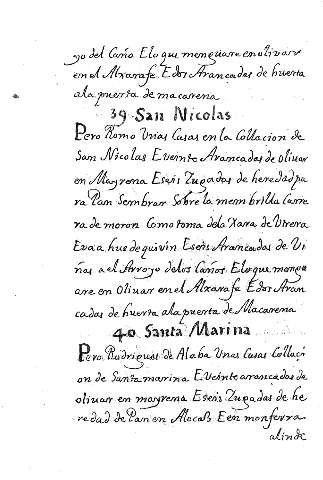 yo del Caño Elo que menguare en olivar
en el Alxarafe Edos Arancadas de huerta
ala puerta de macarena
39 San Nicolas
Pero Romo Unas Casas en la Collacion de
San Nicolas E veinte Arancadas de olivar
en Mayrena Eseis Yugadas de heredad pa
ra Pan Sembrar Sobre la membrilla Carre
ra de moron Como toma dela Xara de Utrera
E va a hue de quivir Eseis Arancadas de Vi
ñas a el Arroyo delos Caños Elo que mengu
are en Olivar en el Alxarafe Edos Aran
cadas de huerta ala puerta de Macarena
40 Santa Marina
Pero Rodrigues de Alaba Unas Casas Collaci
on de Santa marina E Veinte arancadas de
olivar en mayrena Eseis Yugadas de he
redad de Pan en Alocaß E en monferra
alinde